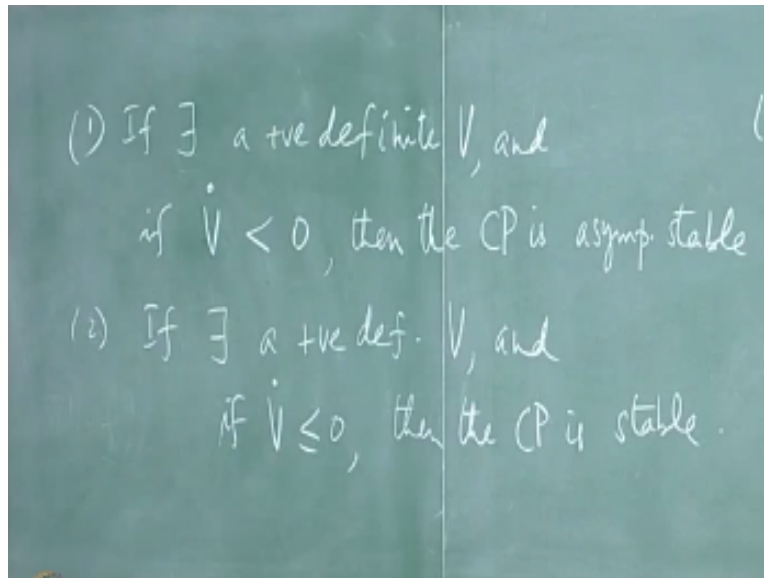 (1) If ∃ a +ve definite V, and
if V̇ < 0, then the CP is asymp. stable
(2) If ∃ a +ve def. V, and
if V̇ ≤ 0, then the CP is stable.
(